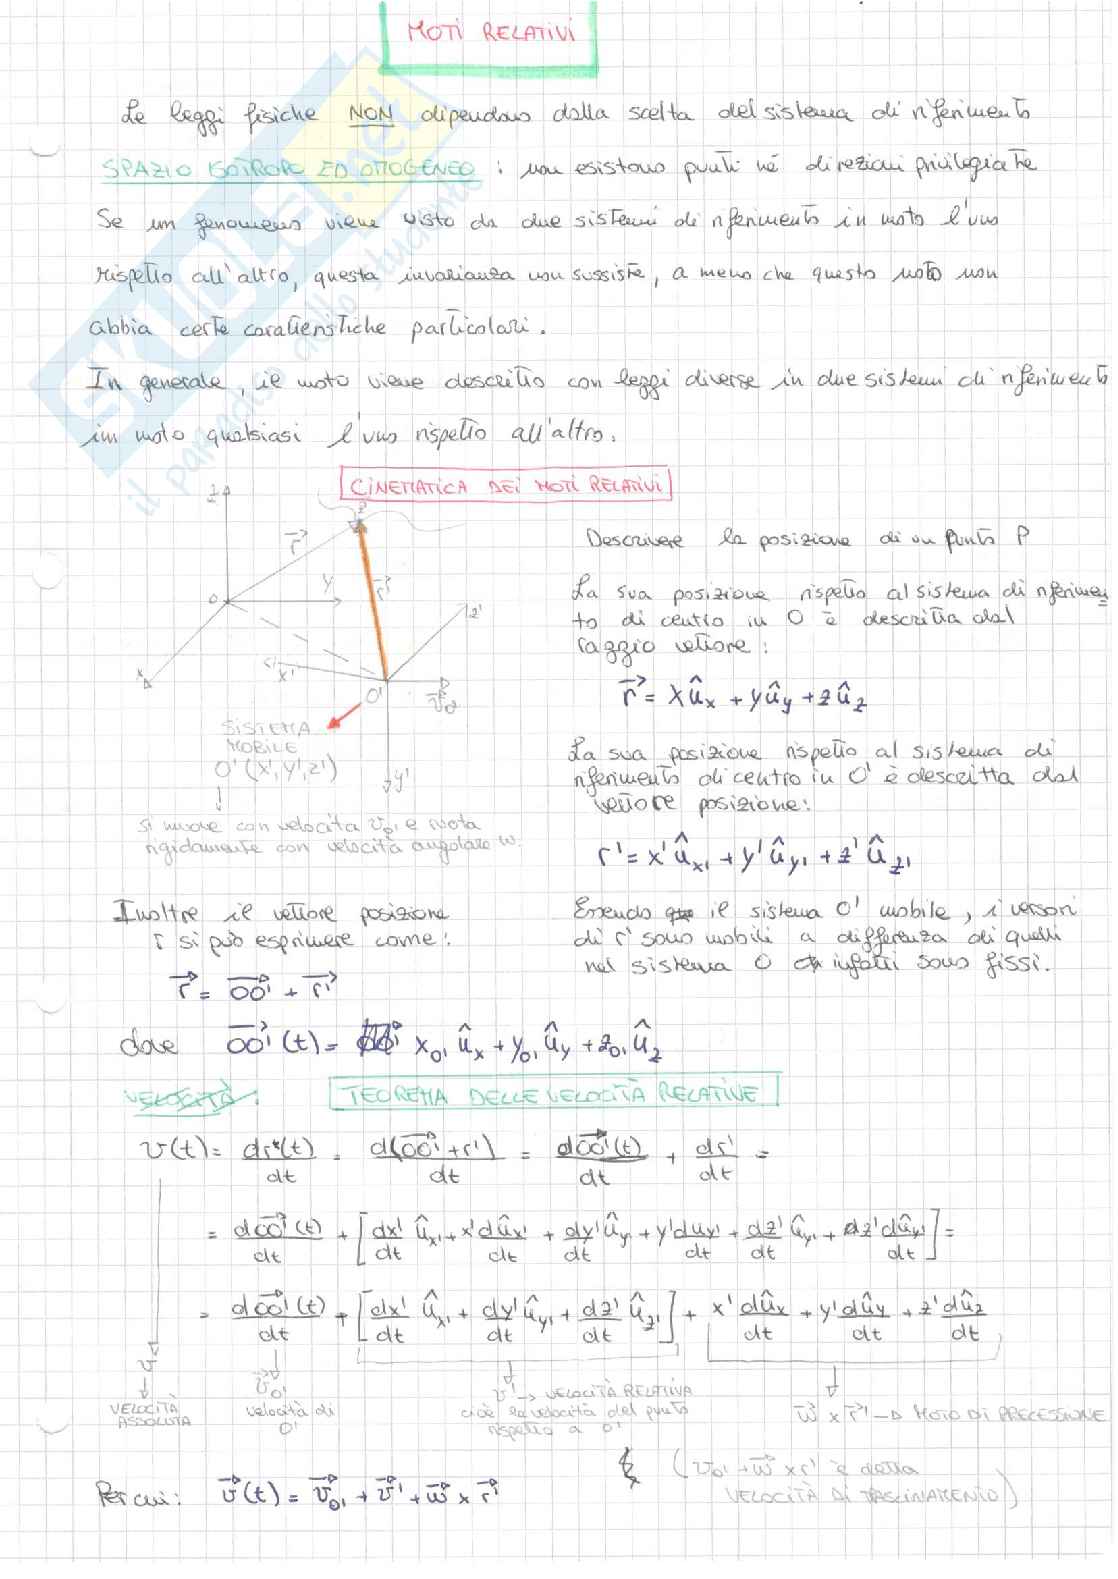 MOTI RELATIVI
Le leggi fisiche NON dipendono dalla scelta del sistema di riferimento
SPAZIO ISOTROPO ED OMOGENEO : non esistono punti né direzioni privilegiate
Se un fenomeno viene visto da due sistemi di riferimento in moto l'uno
rispetto all'altro, questa invarianza non sussiste, a meno che questo moto non
abbia certe caratteristiche particolari.
In generale, il moto viene descritto con leggi diverse in due sistemi di riferimento
in moto qualsiasi l'uno rispetto all'altro.
SKUOLA.net
il paradiso dello studente
CINEMATICA DEI MOTI RELATIVI
z
P
r⃗
r⃗'
y
O
z'
x
x'
O'
v⃗o'
y'
SISTEMA
MOBILE
O'(x', y', z')
si muove con velocità vo' e ruota
rigidamente con velocità angolare w.
Descrivere la posizione di un punto P
La sua posizione rispetto al sistema di riferimen
to di centro in O è descritta dal
raggio vettore :
r⃗ = xûx + yûy + zûz
La sua posizione rispetto al sistema di
riferimento di centro in O' è descritta dal
vettore posizione:
r' = x'ûx' + y'ûy' + z'ûz'
Inoltre il vettore posizione
r si può esprimere come:
r⃗ = OO'⃗ + r⃗'
Essendo il sistema O' mobile, i versori
di r' sono mobili a differenza di quelli
nel sistema O infatti sono fissi.
dove OO'⃗(t) = xo'ûx + yo'ûy + zo'ûz
VELOCITÀ :
TEOREMA DELLE VELOCITÀ RELATIVE
v(t) = dr(t)/dt = d(OO'⃗ + r')/dt = dOO'⃗(t)/dt + dr'/dt =
= dOO'⃗(t)/dt + [dx'/dt ûx' + x'dûx'/dt + dy'/dt ûy' + y'duy'/dt + dz'/dt ûy' + z'dûy'/dt] =
= dOO'⃗(t)/dt + [dx'/dt ûx' + dy'/dt ûy' + dz'/dt ûz'] + x'dûx/dt + y'dûy/dt + z'dûz/dt
v
VELOCITÀ
ASSOLUTA
v⃗o'
velocità di
O'
v' → VELOCITÀ RELATIVA
cioè la velocità del punto
rispetto a O'
w⃗ x r⃗' → MOTO DI PRECESSIONE
Per cui: v⃗(t) = v⃗o' + v⃗' + w⃗ x r⃗'
(vo' + w⃗ x r' è detta
VELOCITÀ DI TRASCINAMENTO)